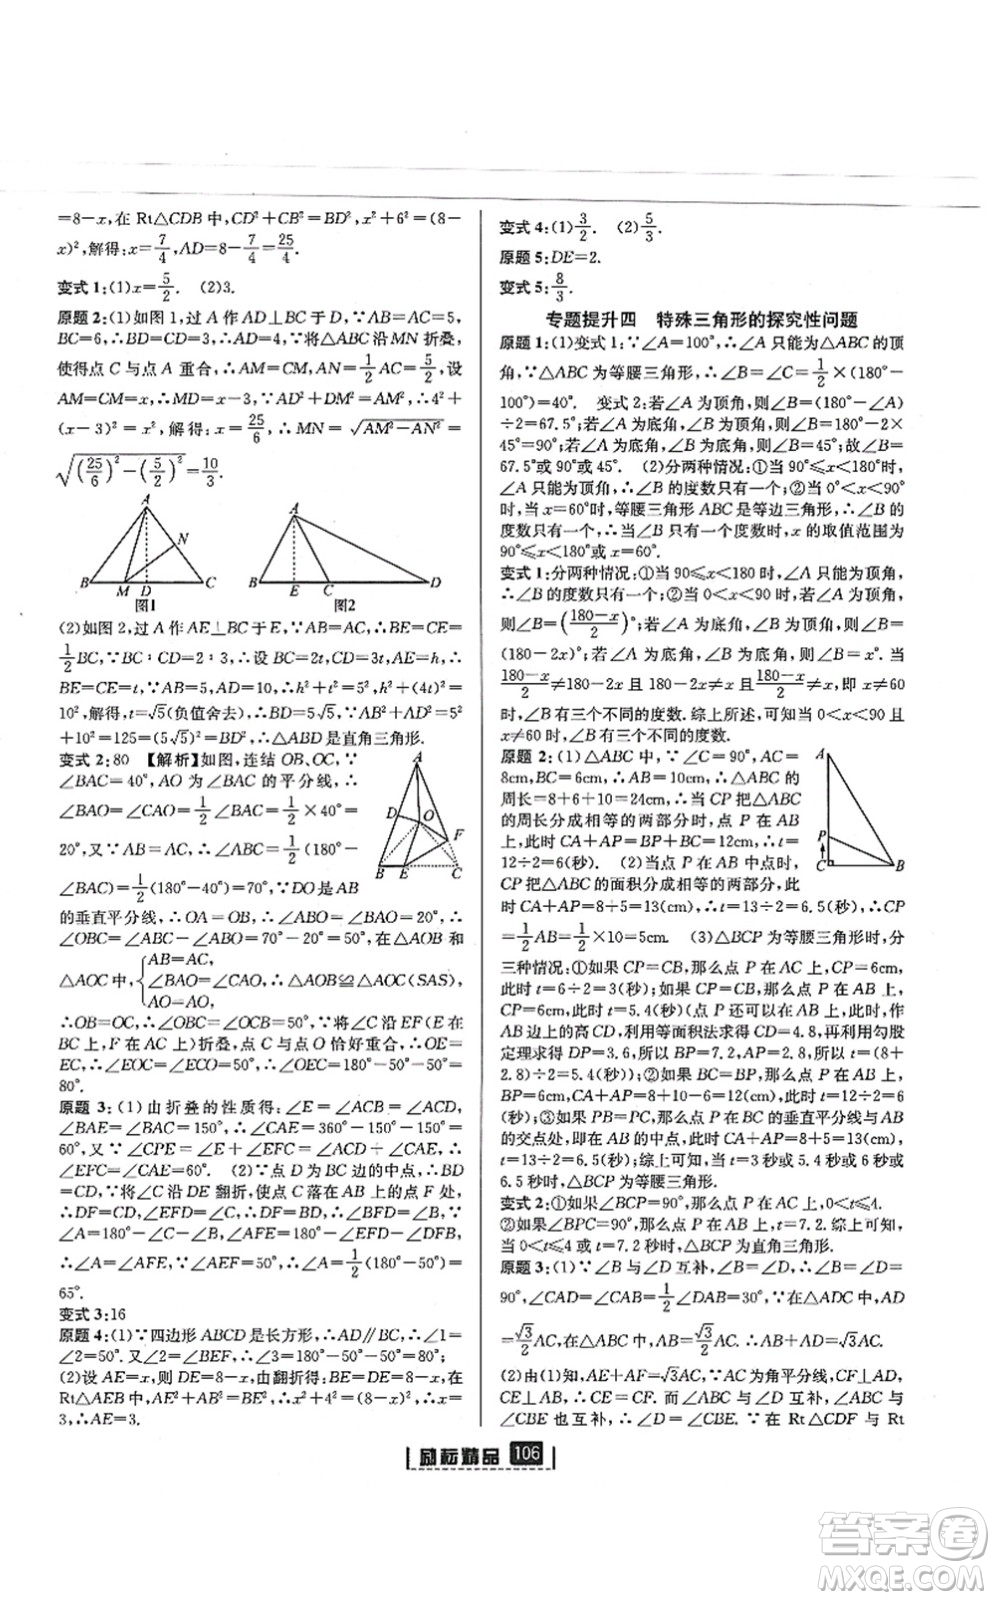 =8-x,在 Rt△CDB 中,CD²+CB²=BD²,x²+6²=(8-
x)²,解得:x=7/4,AD=8-7/4=25/4.
变式 1:(1)x=5/2. (2)3.
原题 2:(1)如图 1,过 A 作 AD⊥BC 于 D,∵AB=AC=5,
BC=6,∴BD=CD=3,∴AD=4,∵将△ABC 沿 MN 折叠,
使得点 C 与点 A 重合,∴AM=CM,AN=1/2AC=5/2,设
AM=CM=x,∴MD=x-3,∵AD²+DM²=AM²,∴4²
+(x-3)²=x²,解得:x=25/6,∴MN=√(AM²-AN²)=
√((25/6)²-(5/2)²)=10/3.
A
N
B
M
D
C
图1
A
B
E
C
D
图2
(2)如图 2,过 A 作 AE⊥BC 于 E,∵AB=AC,∴BE=CE=
1/2BC,∵BC∶CD=2∶3,∴设 BC=2t,CD=3t,AE=h,∴
BE=CE=t,∵AB=5,AD=10,∴h²+t²=5²,h²+(4t)²=
10²,解得,t=√5(负值舍去),∴BD=5√5,∵AB²+AD²=5²
+10²=125=(5√5)²=BD²,∴△ABD是直角三角形.
变式 2:80 【解析】如图,连结 OB、OC,∵
∠BAC=40°,AO 为∠BAC 的平分线,∴
∠BAO=1/2∠BAC=1/2×40°=
20°,又∵AB=AC,∴∠ABC=1/2(180°-
∠BAC)=1/2(180°-40°)=70°,∵DO是AB
的垂直平分线,∴OA=OB,∴∠ABO=∠BAO=20°,∴
∠OBC=∠ABC-∠ABO=70°-20°=50°,在△AOB 和
△AOC 中,{AB=AC,
∠BAO=∠CAO,∴△AOB≌△AOC(SAS),
AO=AO,
A
D
O
F
B
E
C
∴OB=OC,∴∠OCB=∠OBC=50°,∵将∠C沿EF(E在
BC 上,F在AC 上)折叠,点 C与点O 恰好重合,∴OE=
EC,∴∠EOC=∠ECO=50°,∴∠OEC=180°-50°-50°=
80°.
原题 3:(1)由折叠的性质得:∠E=∠ACB=∠ACD,
∠BAE=∠BAC=150°,∴∠CAE=360°-150°-150°=
60°,又∵∠CPE=∠E+∠EFC=∠ACD+∠CAE,∴
∠EFC=∠CAE=60°. (2)∵点 D为 BC边的中点,∴BD
=CD,∵将∠C沿 DE 翻折,使点 C落在AB上的点F处,
∴DF=CD,∠EFD=∠C,∴DF=BD,∴∠BFD=∠B,∵
∠A=180°-∠C-∠B,∠AFE=180°-∠EFD-∠DFB,
∴∠A=∠AFE,∵∠AEF=50°,∴∠A=1/2(180°-50°)=
65°.
变式 3:16
原题 4:(1)∵四边形ABCD是长方形,∴AD∥BC,∴∠1=
∠2=60°,∵∠BEF=∠2=60°,∴∠3=180°-60°-60°=60°.
(2)设 AE=x,则 DE=8-x,由翻折得:BE=DE=8-x,在
Rt△AEB 中,AE²+AB²=BE²,∴x²+4²=(8-x)²,∴x=
3,∴AE=3.
变式 4:(1)3/2. (2)5/3.
原题 5:DE=2.
变式 5:8/3.
专题提升四 特殊三角形的探究性问题
原题 1:(1)变式 1:∵∠A=100°,∴∠A 只能为△ABC 的顶
角,∵△ABC 为等腰三角形,∴∠B=∠C=1/2×(180°-
100°)=40°. 变式 2:若∠A 为顶角,则∠B=(180°-∠A)
÷2=67.5°;若∠A 为底角,∠B 为顶角,则∠B=180°-2×
45°=90°;若∠A 为底角,∠B 为底角,则∠B=45°;故∠B=
67.5°或 90°或 45°. (2)分两种情况:①当 90°≤x<180°时,
∠A 只能为顶角,∴∠B 的度数只有一个;②当 0<x<90°
时,当 x=60°时,等腰三角形 ABC 是等边三角形,∴∠B 的
度数只有一个,∴当∠B 的度数只有一个度数时,x 的取值范围为
90°≤x<180°或x=60°.
变式 1:分两种情况:①当 90≤x<180 时,∠A只能为顶角,
∴∠B的度数只有一个;②当0<x<90时,若∠A为顶角,
则∠B=((180-x)/2)°;若∠A为底角,∠B为顶角,则∠B=
(180-2x)°;若∠A为底角,∠B为底角,则∠B=x°. 当
(180-x)/2≠180-2x 且 180-2x≠x 且(180-x)/2≠x,即 x≠60
时,∠B 有三个不同的度数.综上所述,可知当0<x<90且
x≠60时,∠B有三个不同的度数.
原题 2:(1)△ABC 中,∵∠C=90°,AC=
8cm,BC=6cm,∴AB=10cm,∴△ABC 的
周长=8+6+10=24cm,∴当 CP 把△ABC
的周长分成相等的两部分时,点 P 在 AB
上,此时 CA+AP=BP+BC=12cm,∴t=
12÷2=6(秒). (2)当点 P 在 AB 中点时,
CP 把△ABC 的面积分成相等的两部分,此
时 CA+AP=8+5=13(cm),∴t=13÷2=6.5(秒),∴CP
=1/2AB=1/2×10=5cm. (3)△BCP 为等腰三角形时,分
三种情况:①如果 CP=CB,那么点 P 在 AC 上,CP=6cm,
此时 t=6÷2=3(秒);如果 CP=CB,那么点 P 在 AB 上,
CP=6cm,此时 t=5.4(秒)(点 P 还可以在 AB 上,此时,作
AB 边上的高 CD,利用等面积法求得 CD=4.8,再利用勾股
定理求得 DP=3.6,所以BP=7.2,AP=2.8,所以 t=(8+
2.8)÷2=5.4(秒));②如果 BC=BP,那么点 P 在 AB 上,
BP=6cm,此时 CA+AP=8+10-6=12(cm),t=12÷2=6
(秒);③如果 PB=PC,那么点 P 在 BC 的垂直平分线与AB
的交点处,即在 AB 的中点,此时 CA+AP=8+5=13(cm),
t=13÷2=6.5(秒);综上可知,当 t=3 秒或 5.4 秒或 6 秒或
6.5 秒时,△BCP为等腰三角形.
A
P
C
B
变式 2:①如果∠BCP=90°,那么点 P在AC 上,0<t≤4.
②如果∠BPC=90°,那么点P在AB上,t=7.2.综上可知,
当 0<t≤4或 t=7.2时,△BCP为直角三角形.
原题 3:(1)∵∠B 与∠D 互补,∴∠B=∠D=
90°,∠CAD=∠CAB=1/2∠DAB=30°,∵在△ADC 中,AD
=√3/2AC,AB=√3/2AC,∴AB+AD=√3AC.
(2)由(1)知,AE+AF=√3AC,∵AC为角平分线,CF⊥AD,
CE⊥AB,∴CE=CF. 而∠ABC 与∠D 互补,∠ABC 与
∠CBE 也互补,∴∠D=∠CBE. ∵在 Rt△CDF 与 Rt
励耘精品 106
答案圈
MXQE.COM